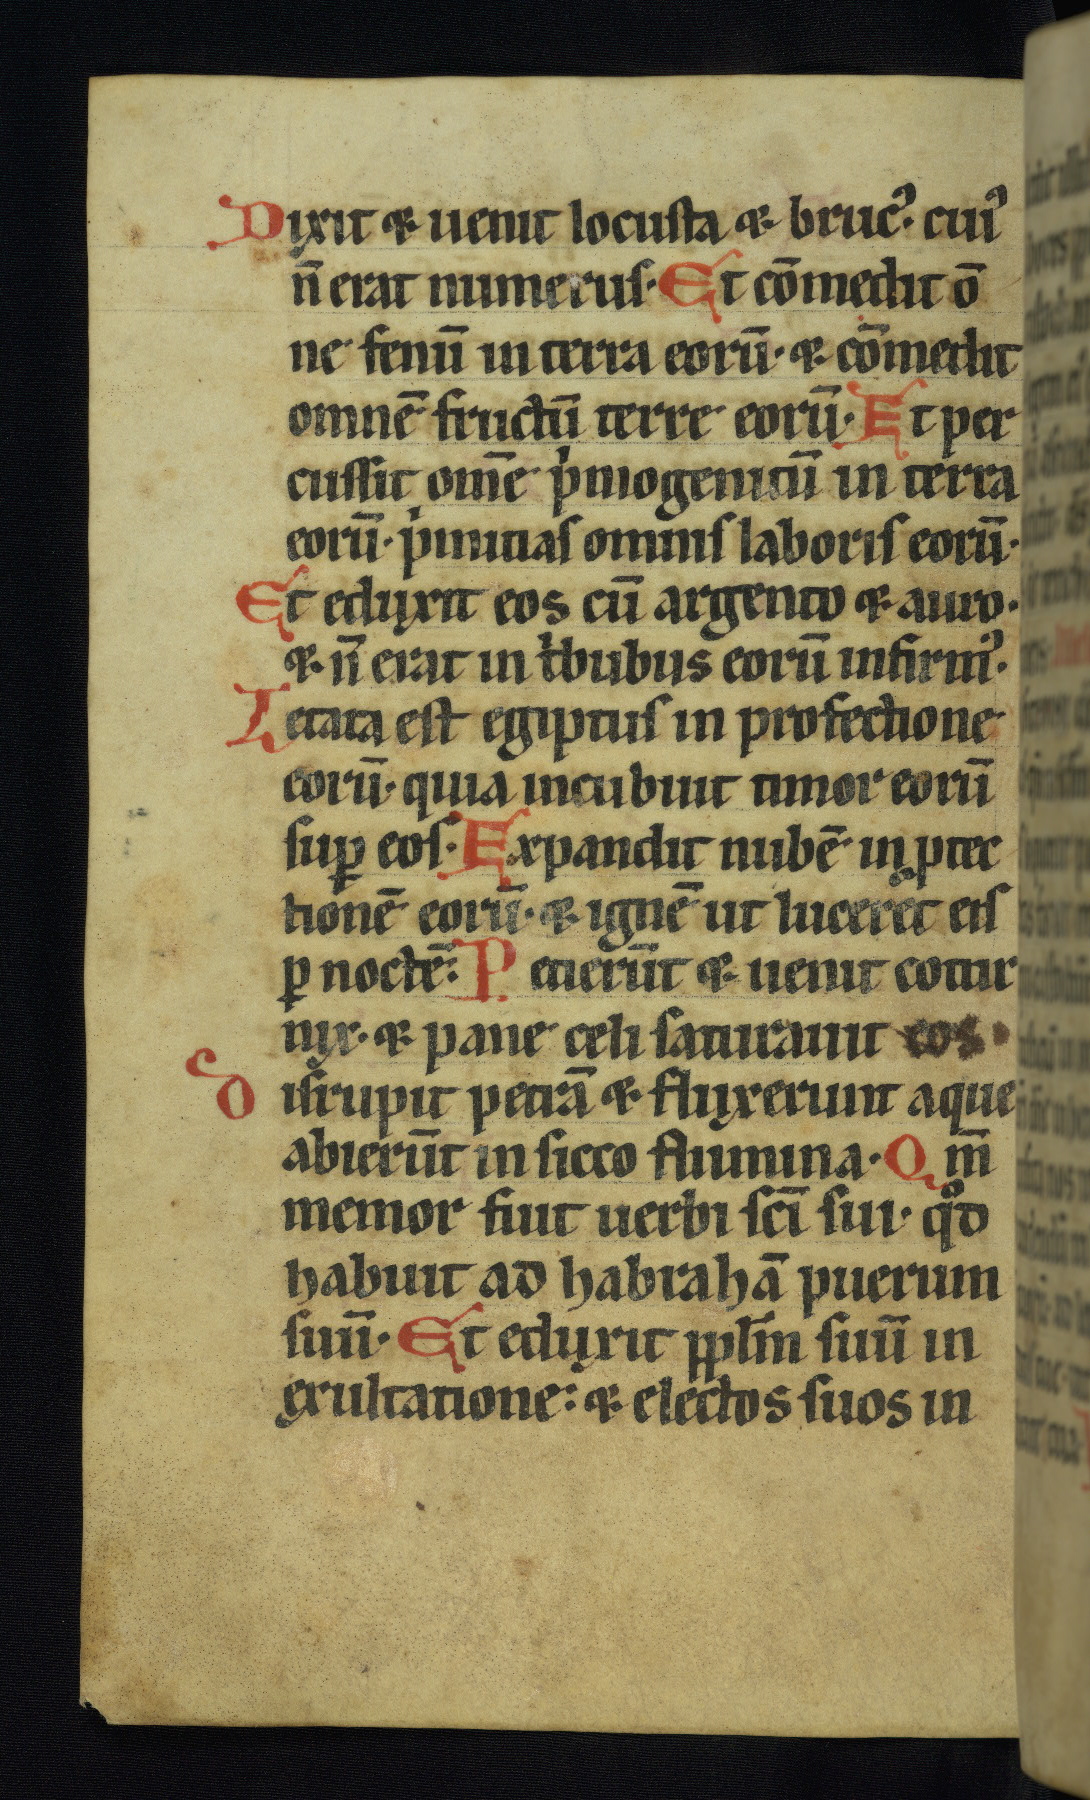 Dixit & uenit locusta & brucꝰ. cuiꝰ
n̄ erat numerus. Et cōmedit ō
ne fenū in terra eorū. & cōmedit
omnē fructū terre eorū. Et per
cussit om̄e pͥmogenitū in terra
eorū. pͥmitias omnis laboris eorū.
Et eduxit eos cū argento & auro.
& n̄ erat in tͥbubus eorū infirmꝰ.
Letata est egiptus in profectione
eorū. quia incubuit timor eorū
suꝑ eos. Expandit nubē in ꝓtec
tionē eorū. & ignē ut luceret eis
ꝑ noctē: Petierūt & uenit cotur
nix. & pane celi saturauit eos.
Disrupit petrā & fluxerunt aque
abierūt in sicco flumina. Qm̄
memor fuit uerbi sc̄i sui. qͦd
habuit ad habrahā puerum
suū. Et eduxit pplm̄ suū in
exultatione: & electos suos in